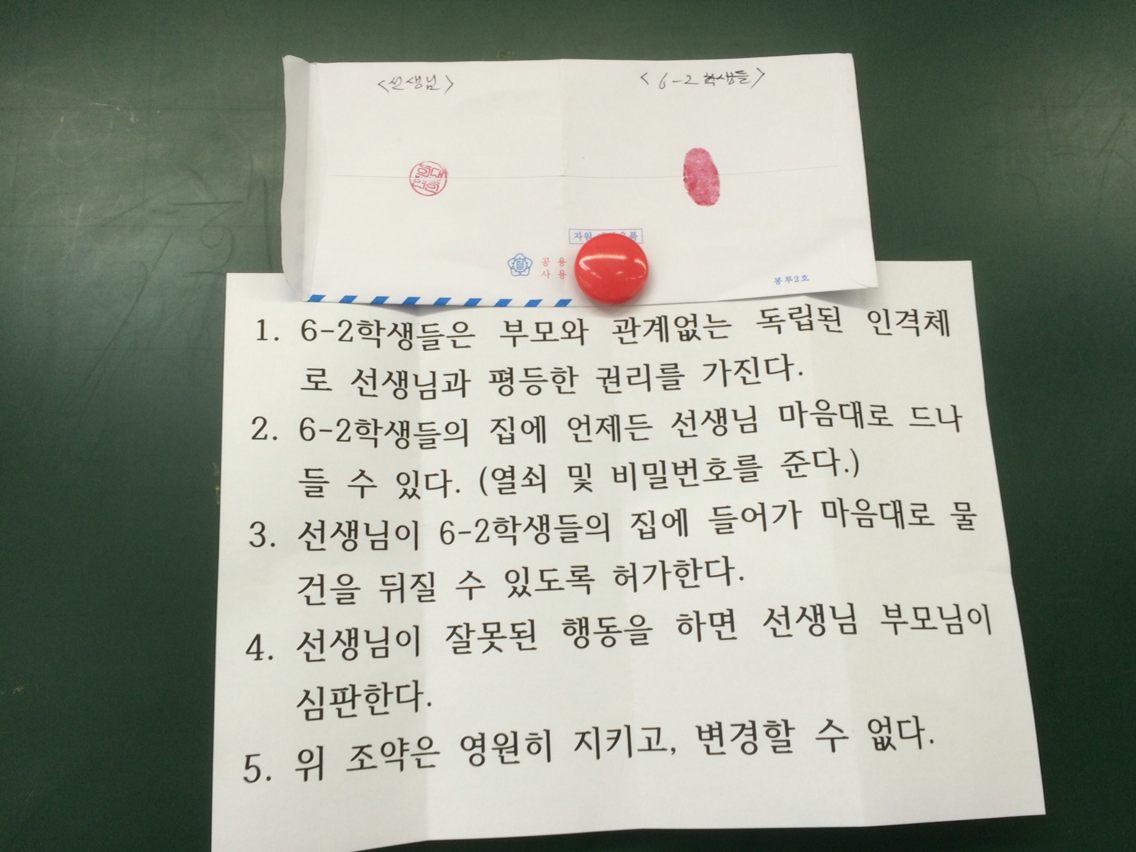 <선생님> <6-2 학생들>
자원
공용
사용
봉투2호
1. 6-2학생들은 부모와 관계없는 독립된 인격체
로 선생님과 평등한 권리를 가진다.
2. 6-2학생들의 집에 언제든 선생님 마음대로 드나
들 수 있다. (열쇠 및 비밀번호를 준다.)
3. 선생님이 6-2학생들의 집에 들어가 마음대로 물
건을 뒤질 수 있도록 허가한다.
4. 선생님이 잘못된 행동을 하면 선생님 부모님이
심판한다.
5. 위 조약은 영원히 지키고, 변경할 수 없다.